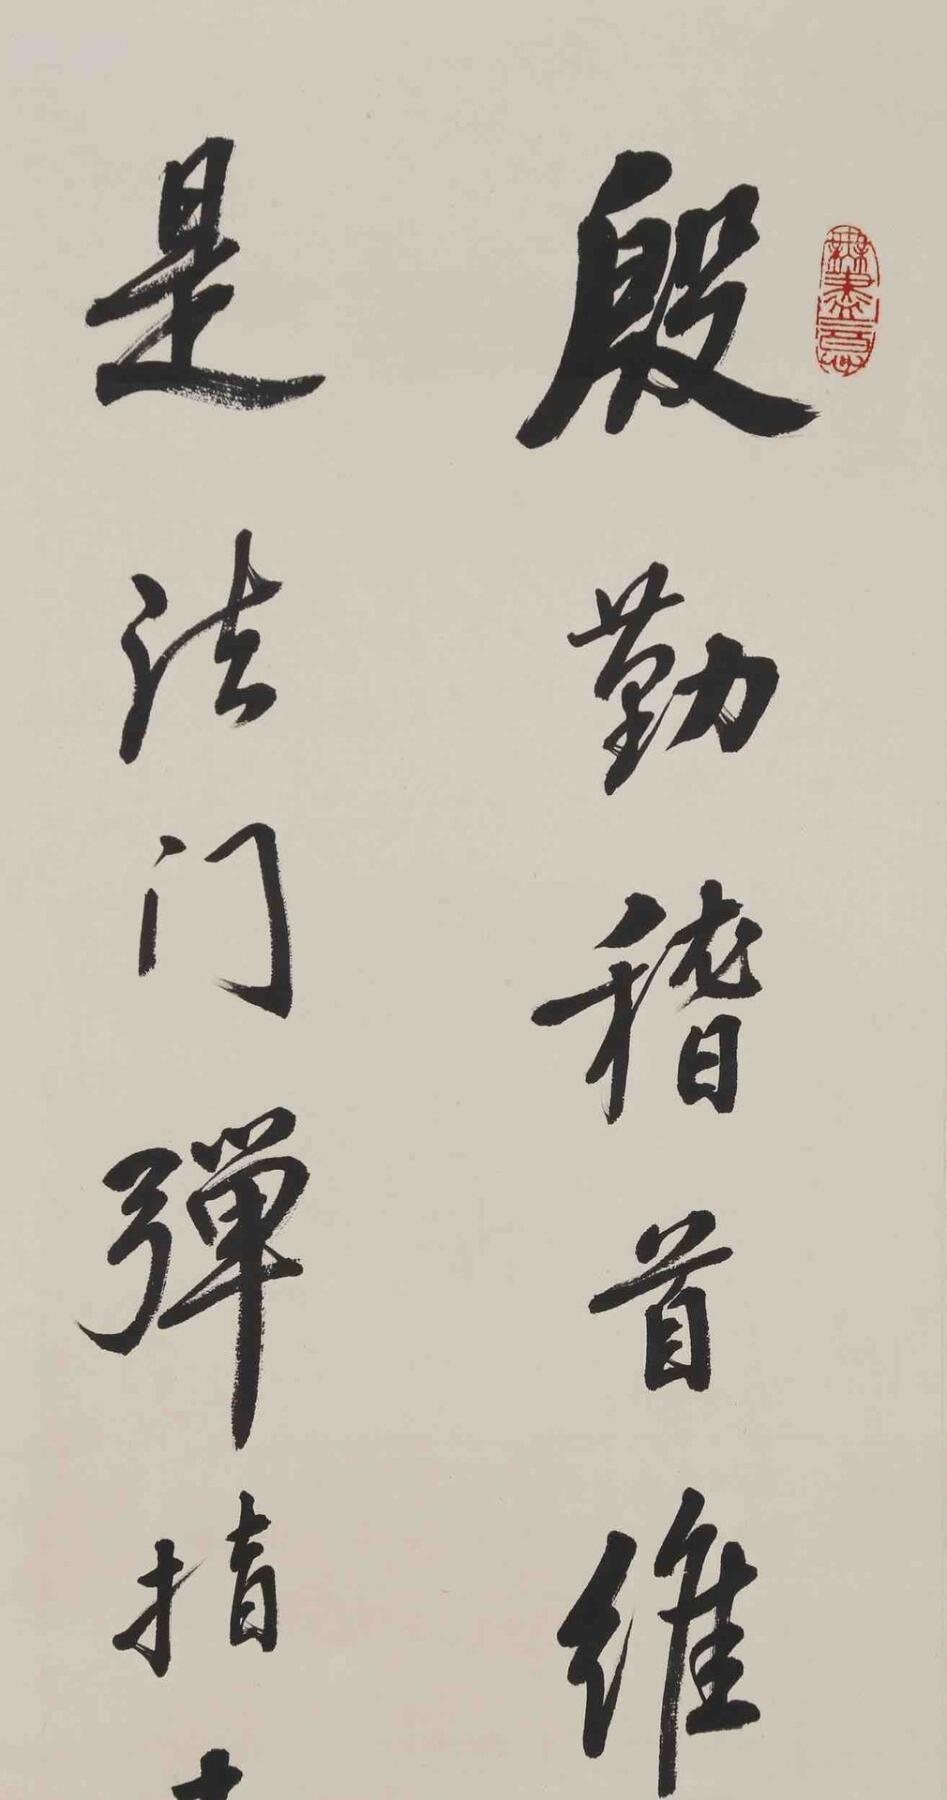 殷勤稽首维
是法门弹指